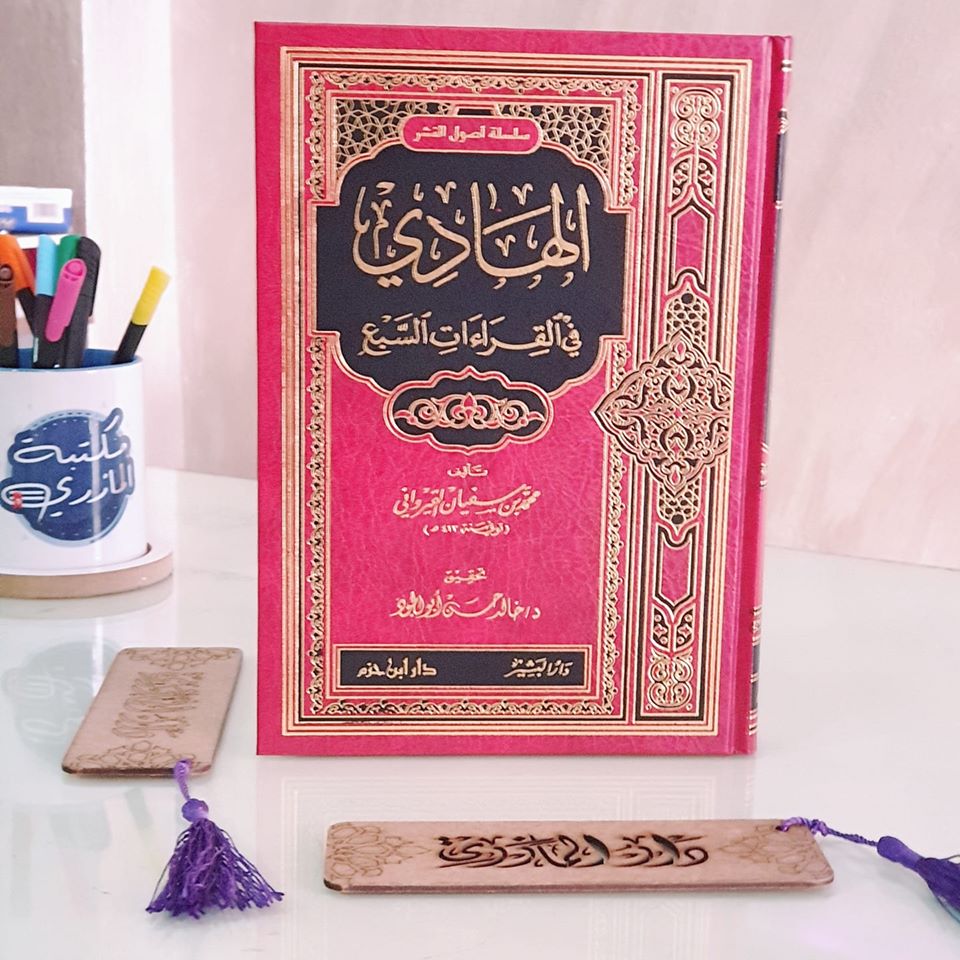 سلسلة أصول النشر
الهَادِي
فِي القِرَاءَاتِ السَّبْعِ
تأليف
محمد بن سفيان القيرواني
(توفي سنة ٤١٣ هـ)
تحقيق
د/خالد حسن أبو الجود
دار البشير
دار ابن حزم
مكتبة
المازري
دار المازري